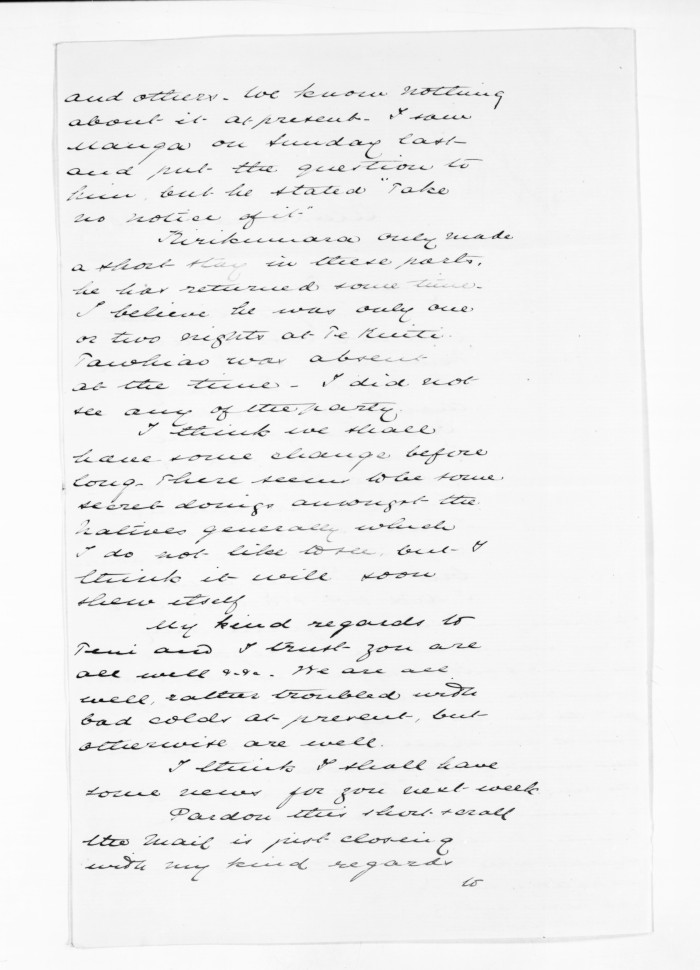 and others. We know nothing
about it at present. I saw
Manga on Sunday last
and put the question to
him, but he stated "Take
no notice of it"
Kirikumara only made
a short stay in these parts,
he has returned some time.
I believe he was only one
or two nights at Te Kuiti.
Tawhiao was absent
at the time - I did not
see any of the party.
I think we shall
have some change before
long. There seems to be some
secret doings amongst the
Natives generally which
I do not like to see, but I
think it will soon
shew itself
My kind regards to
Teni and I trust you are
all well &c. We are all
well, rather troubled with
bad colds at present, but
otherwise are well.
I think I shall have
some news for you next week
Pardon this short scrall
the Mail is just closing
with my kind regards
to